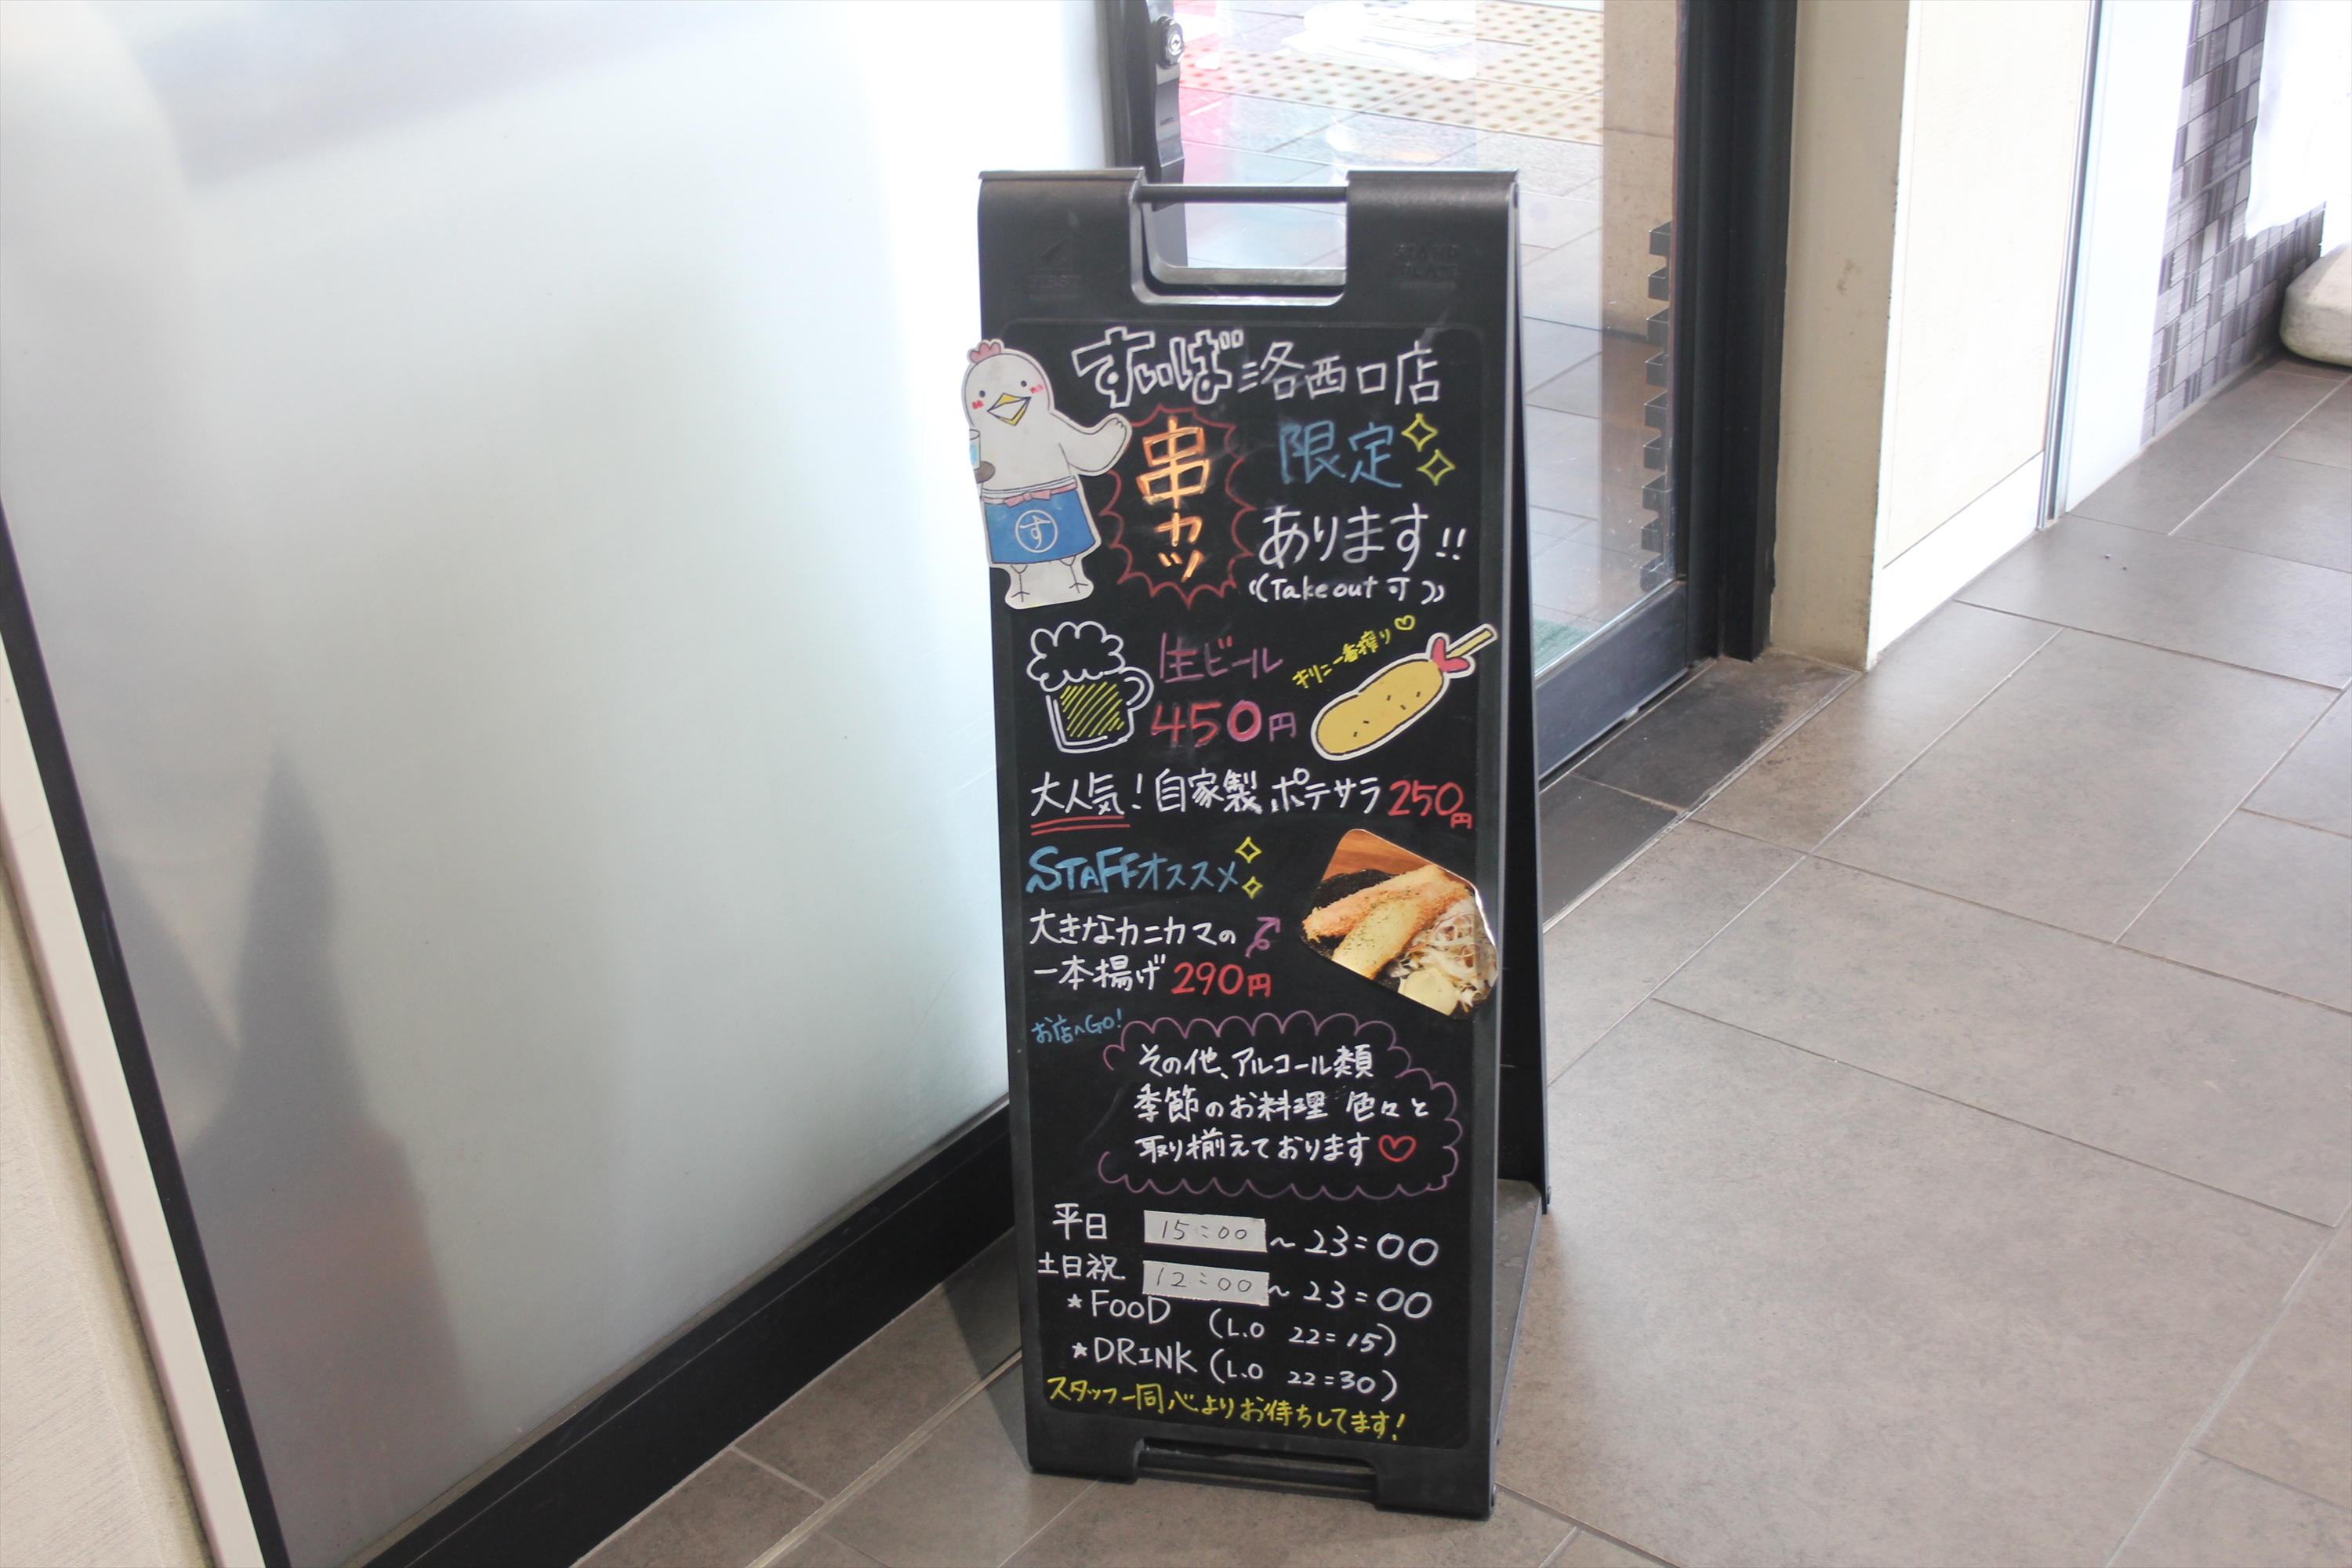 すいば洛西口店
限定
串カツ
あります!!
(Takeout可)
す
生ビール
キリン一番搾り♡
450円
大人気!自家製ポテサラ250円
STAFFオススメ
大きなカニカマの
一本揚げ290円
お店へGO!
その他、アルコール類
季節のお料理 色々と
取り揃えております♡
平日 15:00~23:00
土日祝 12:00~23:00
★FOOD (L.O 22:15)
★DRINK (L.O 22:30)
スタッフ一同心よりお待ちしてます!